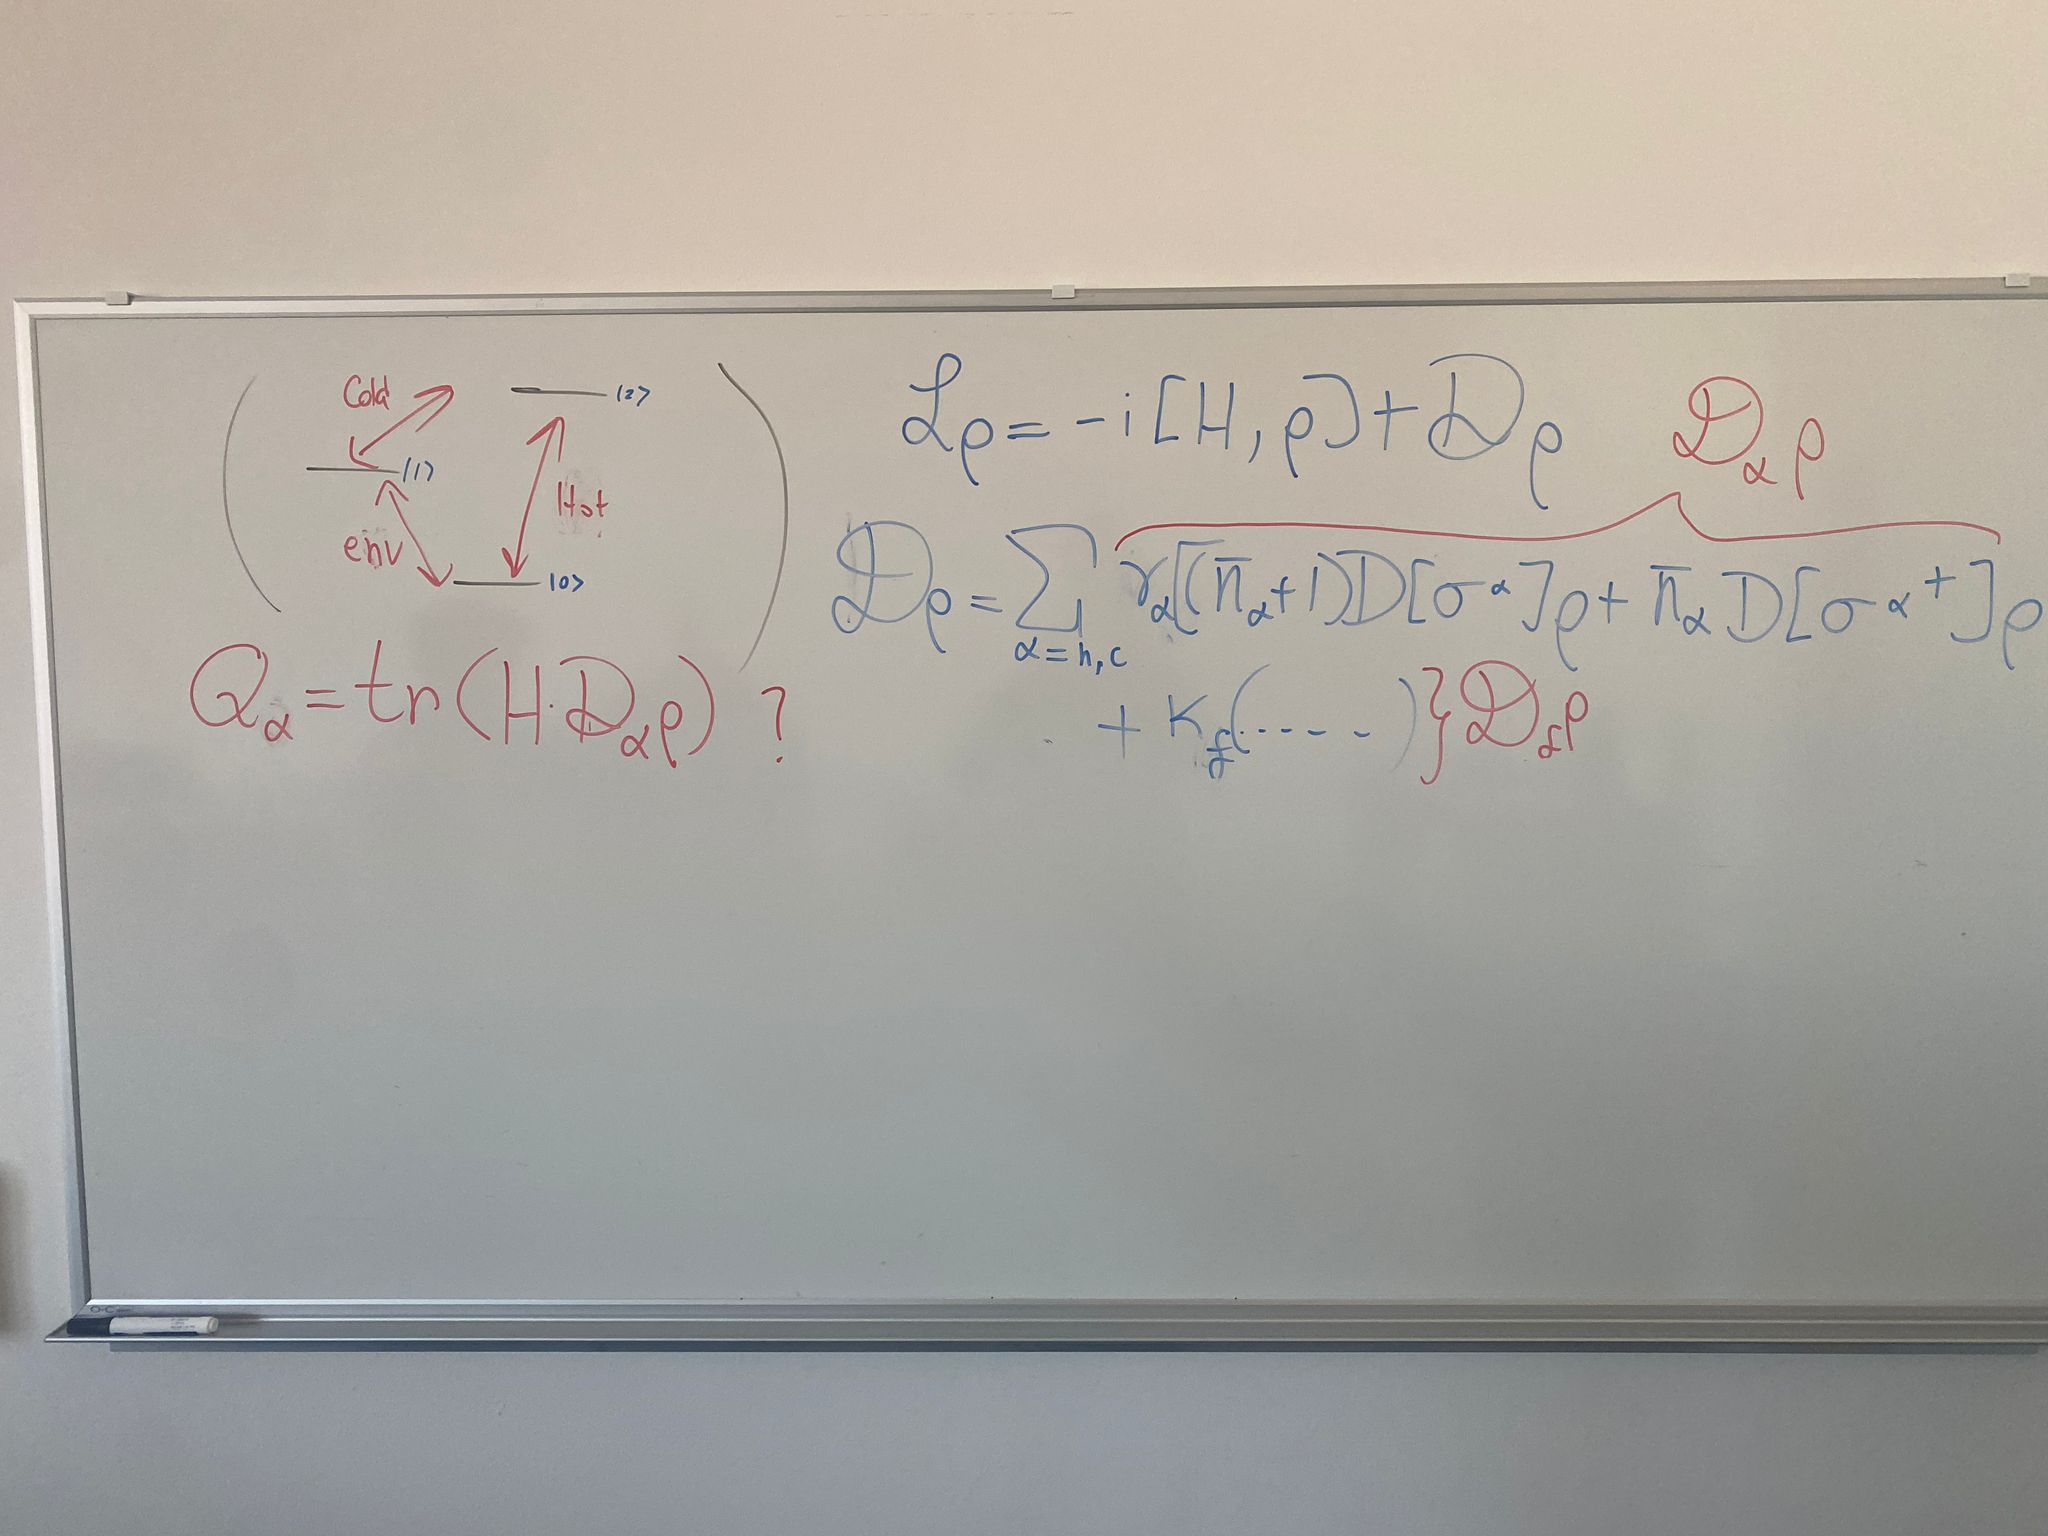 Cold
|2⟩
|1⟩
Hot
env
|0⟩
Q_α = tr(H·𝒟_αρ) ?
ℒρ = -i[H, ρ] + 𝒟ρ
𝒟_αρ
𝒟ρ = Σ_{α=h,c} γ_α[(n̄_α+1)D[σ^α]ρ + n̄_α D[σ^{α†}]ρ
+ K_f(.....)} 𝒟_fρ